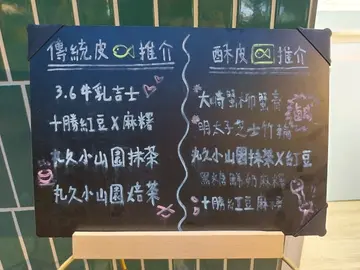 傳統皮 推介
3.6牛乳吉士
十勝紅豆X麻糬
丸久小山園抹茶
丸久小山園焙茶
酥皮 推介
大崎蟹柳蟹膏
明太子芝士竹輪
丸久小山園抹茶X紅豆
黑糖鮮奶麻糬
十勝紅豆麻糬